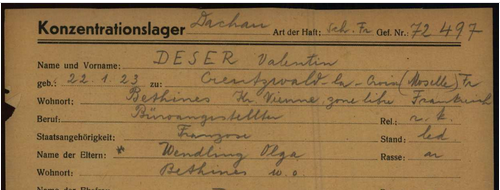 Konzentrationslager Dachau Art der Haft: Sch. Fr Gef. Nr.: 72497
Name und Vorname: DESER Valentin
geb.: 22.1.23 zu: Creutzwald la-Croix (Moselle) Fr
Wohnort: Bethines Kr Vienne, zone libre Frankreich
Beruf: Büroangestellter Rel.: r. k.
Staatsangehörigkeit: Franzose Stand: led
Name der Eltern: Wendling Olga Rasse: ar
Wohnort: Bethines w.o